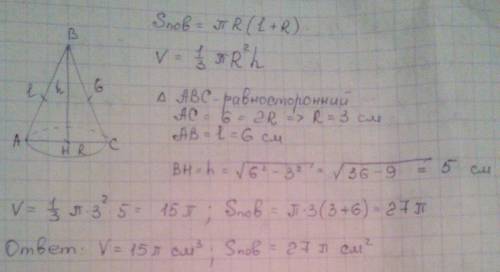 B
Sпов = πR(l+R)
V = 1/3 πR²h
l h 6
Δ ABC - равносторонний
AC = 6 = 2R => R = 3 см
AB = l = 6 см
A H R C
BH = h = √6² - 3² = √36 - 9 = 5 см
V = 1/3 π·3²·5 = 15π ; Sпов = π·3(3+6) = 27π
Ответ: V = 15π см³ ; Sпов = 27π см²